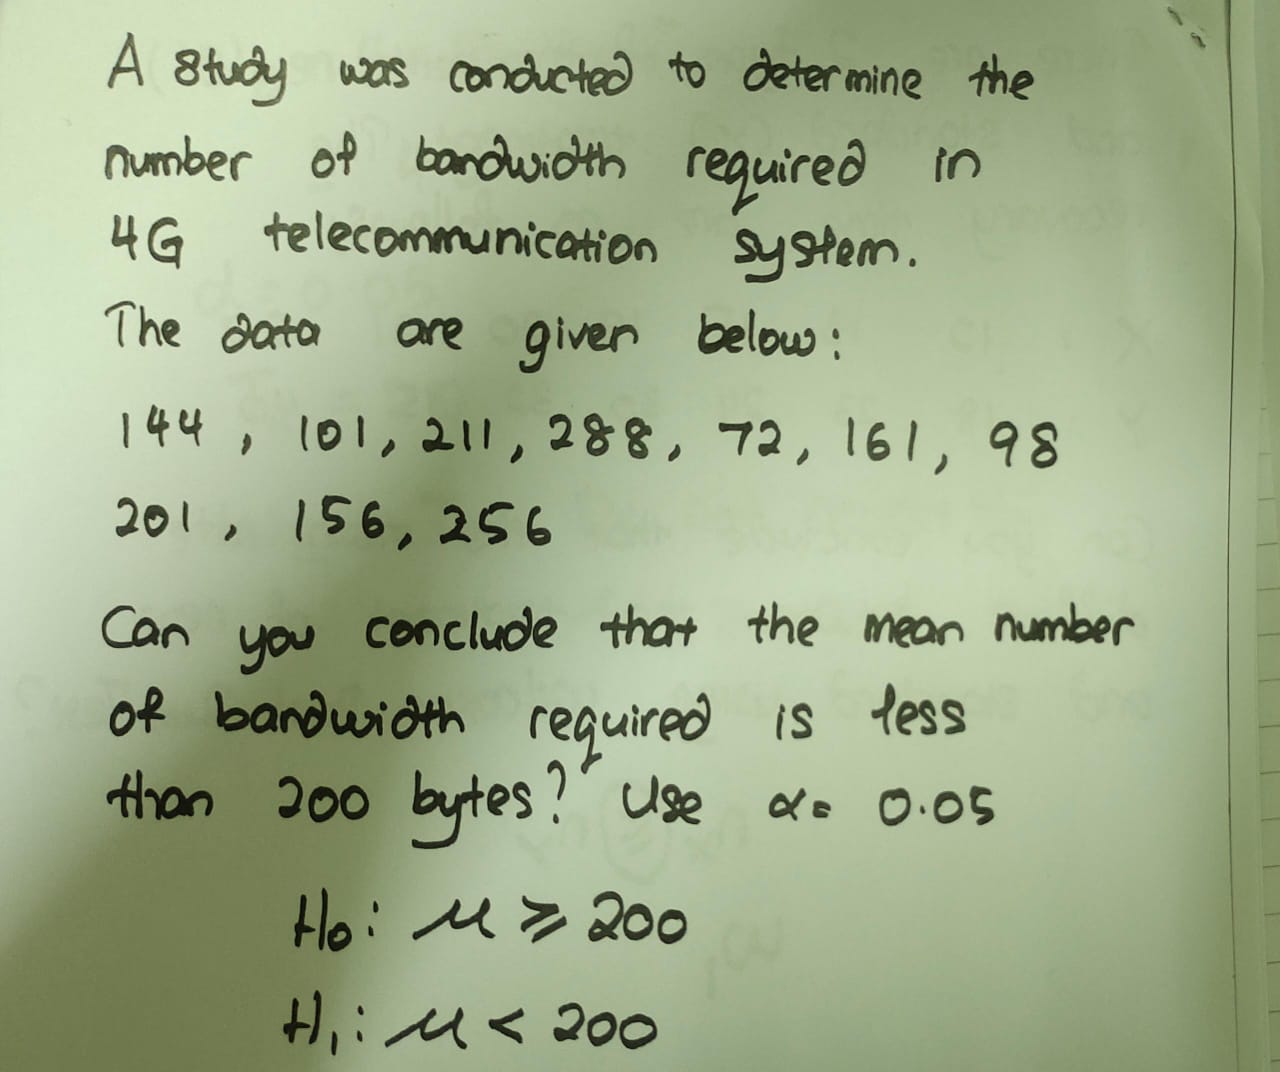 A study was conducted to determine the
number of bandwidth required in
4G telecommunication system.
The data are given below:
144, 101, 211, 288, 72, 161, 98
201, 156, 256
Can you conclude that the mean number
of bandwidth required is less
than 200 bytes? Use α= 0.05
H₀: μ ⩾ 200
H₁: μ < 200